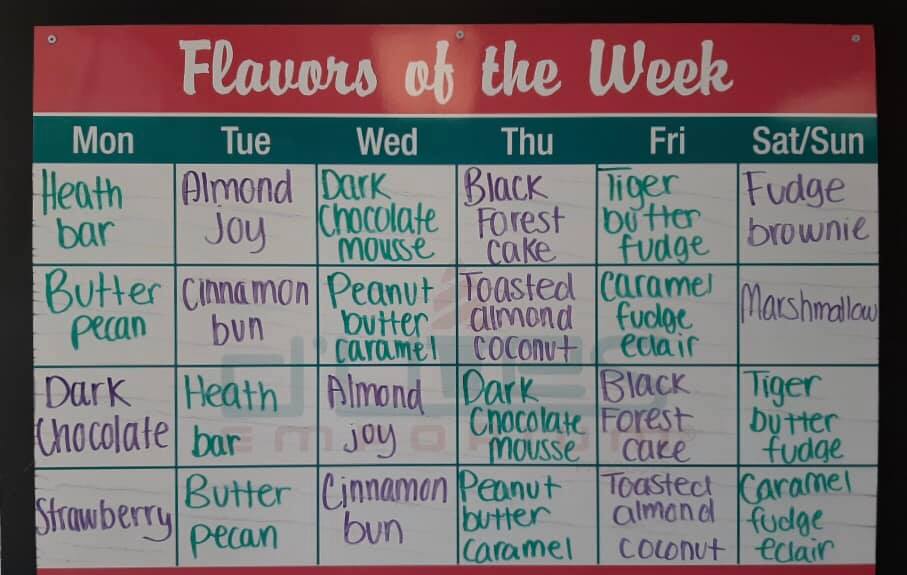 Flavors of the Week
Mon Tue Wed Thu Fri Sat/Sun
Heath
bar
Almond
Joy
Dark
Chocolate
mousse
Black
Forest
cake
Tiger
butter
fudge
Fudge
brownie
Butter
pecan
Cinnamon
bun
Peanut
butter
caramel
Toasted
almond
coconut
Caramel
fudge
eclair
Marshmallow
Dark
Chocolate
Heath
bar
Almond
joy
Dark
Chocolate
mousse
Black
Forest
cake
Tiger
butter
fudge
Strawberry
Butter
pecan
Cinnamon
bun
Peanut
butter
caramel
Toasted
almond
coconut
Caramel
fudge
eclair